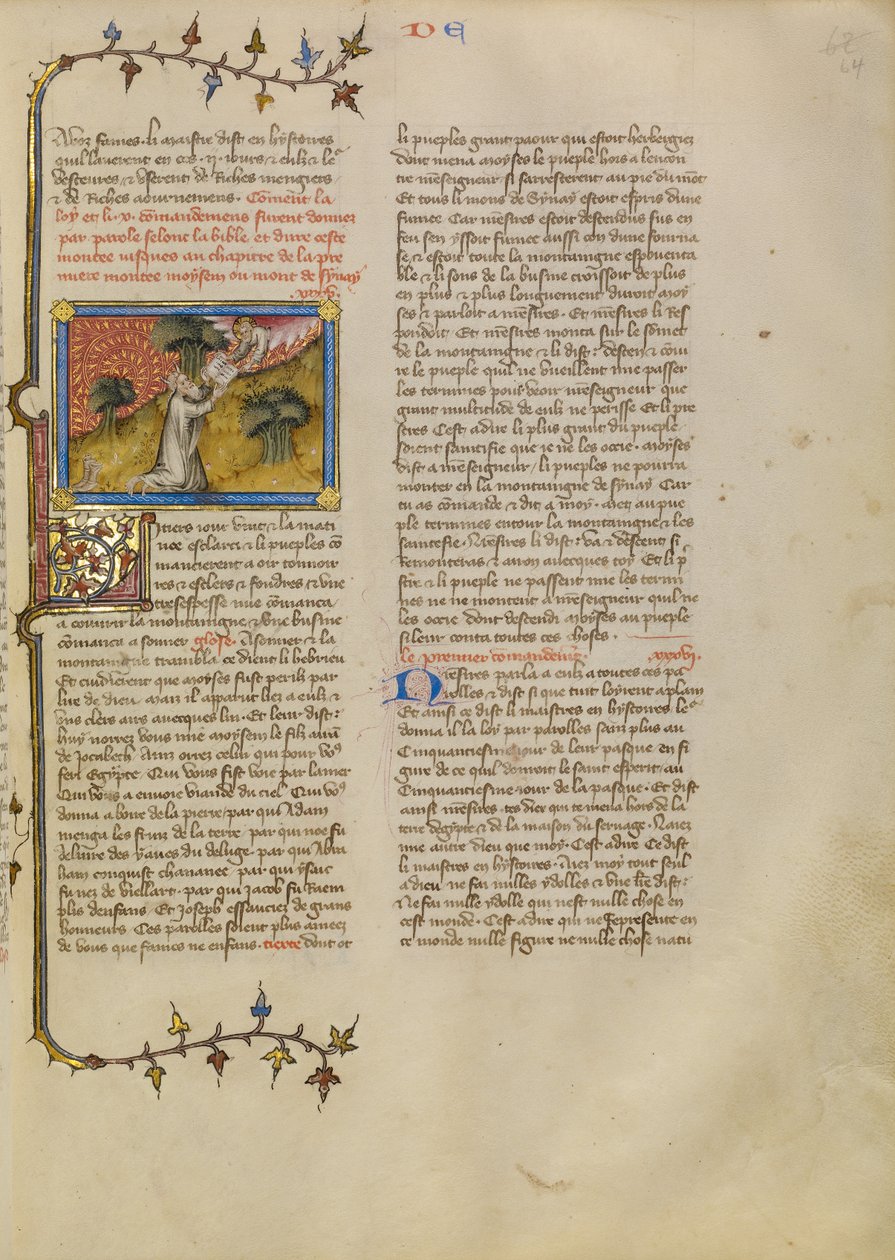 D E
62
64
a voz fames. li maistre dist en hystoires
quil laverent en ces .ii. iours & eulz & le
vesteures & userent de riches mengiers
& de riches aournemens. Coment la
loy et li .x. comandemens furent donnez
par parole selonc la bible et dure ceste
montee iusques au chapitre de la pre
miere montee moysem ou mont de synay
.xxxv.
tiers iour vint & la mati
nee esclarci & li pueples co
mancierent a oir tonnoir
res & esclers & fondres & une
tresespesse nue comanca
a couvrir la montaingne & une busine
comanca a sonner glose. A sonner & la
montaingne trambla ce dient li hebrieu
Et cuidierent que moyses fust perilz par
lue de dieu. maiz il apparut liez a eulz &
uns clers airs avecques lui. Et leur dist:
huy norrez vous mie moysem le filz aura
de Jocabeth. Ainz orrez celui qui pour vos
feri Egypte. Qui vous fist voie par la mer
Qui vous a envoie viande du ciel Qui vos
donna a boire de la pierre. par qui Adam
menga les fruiz de la terre. par qui noe fu
delivre des yaues du deluge. par qui Abra
ham conquist chananee. par qui ysaac
fu nez de viellart. par qui Jacob fu raem
plis denfans. Et Joseph essauciez de grans
honneurs. Ces parolles soient plus amees
de vous que fames ne enfans. tiexte dont ot
li pueples grant paour qui estoit herbergiez
dont mena moyses le pueple hors a lencon
tre nreseigneur. si sarresterent au pie du mont
Et tous li mons de Synay estoit espris dune
fumee Car nresires estoit descendus sus en
feu sen yssoit fumee aussi con dune fourna
se, & estoit toute la montaingne espouenta
ble & li sons de la busine croissoit de plus
en plus & plus longuement duroit moy
ses & parloit a nresires. Et nresires li res
pondoit. Et nresires monta sur le somet
de la montaingne & li dist: descen & coniu
re le pueple quil ne vueillent mie passer
les termines pour veoir nreseigneur que
grant multitude de eulz ne perisse Et li pre
stres Cest a dire li plus grant du pueple
soient saintifie que ie ne les occie. moyses
dist a nreseigneur / li pueples ne pourra
monter en la montaingne de synay Car
tu as comande & dit a moy. met au pue
ple termines entour la montaingne & les
saintefie. Nresires li dist: va & descent si
remonteras & aaron avecques toy Et li p
stre & li pueple ne passent mie les termi
nes ne ne montent a nreseigneur quil ne
les occie dont descendi moyses au pueple
si leur conta toutes ces choses.
le premier comandemt. .xxxvi.
Nresires parla a eulz a toutes ces pa
rolles & dist si que tuit loyrent a plain
Et ainsi ce dist li maistres en hystoires le
donna il la loy par parolles sanz plus au
Cinquantiesme iour de leur pasque en fi
gure de ce quil donroit le saint esperit au
Cinquantiesme iour de la pasque. Et dist
ainsi nresires. tes diex qui te mena hors de la
terre degypte & de la maison du servage. Naiez
mie autre dieu que moy. Cest a dire Ce dist
li maistres en hystoires. Aiez moy tout seul
a dieu. ne fai nulles ydolles & une lre dist:
Ne fai nulle ydolle qui nest nulle chose en
cest monde. Cest a dire qui ne represente en
ce monde nulle figure ne nulle chose natu